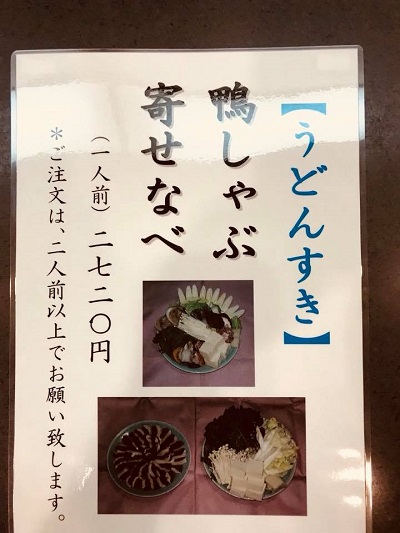 【うどんすき】
鴨しゃぶ
寄せなべ
（一人前）二七二〇円
＊ご注文は、二人前以上でお願い致します。